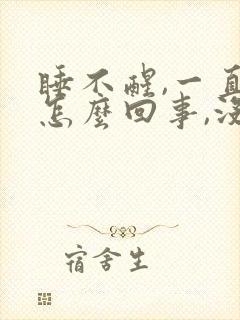 睡不醒,一直
怎麼回事,沒
宿舍生